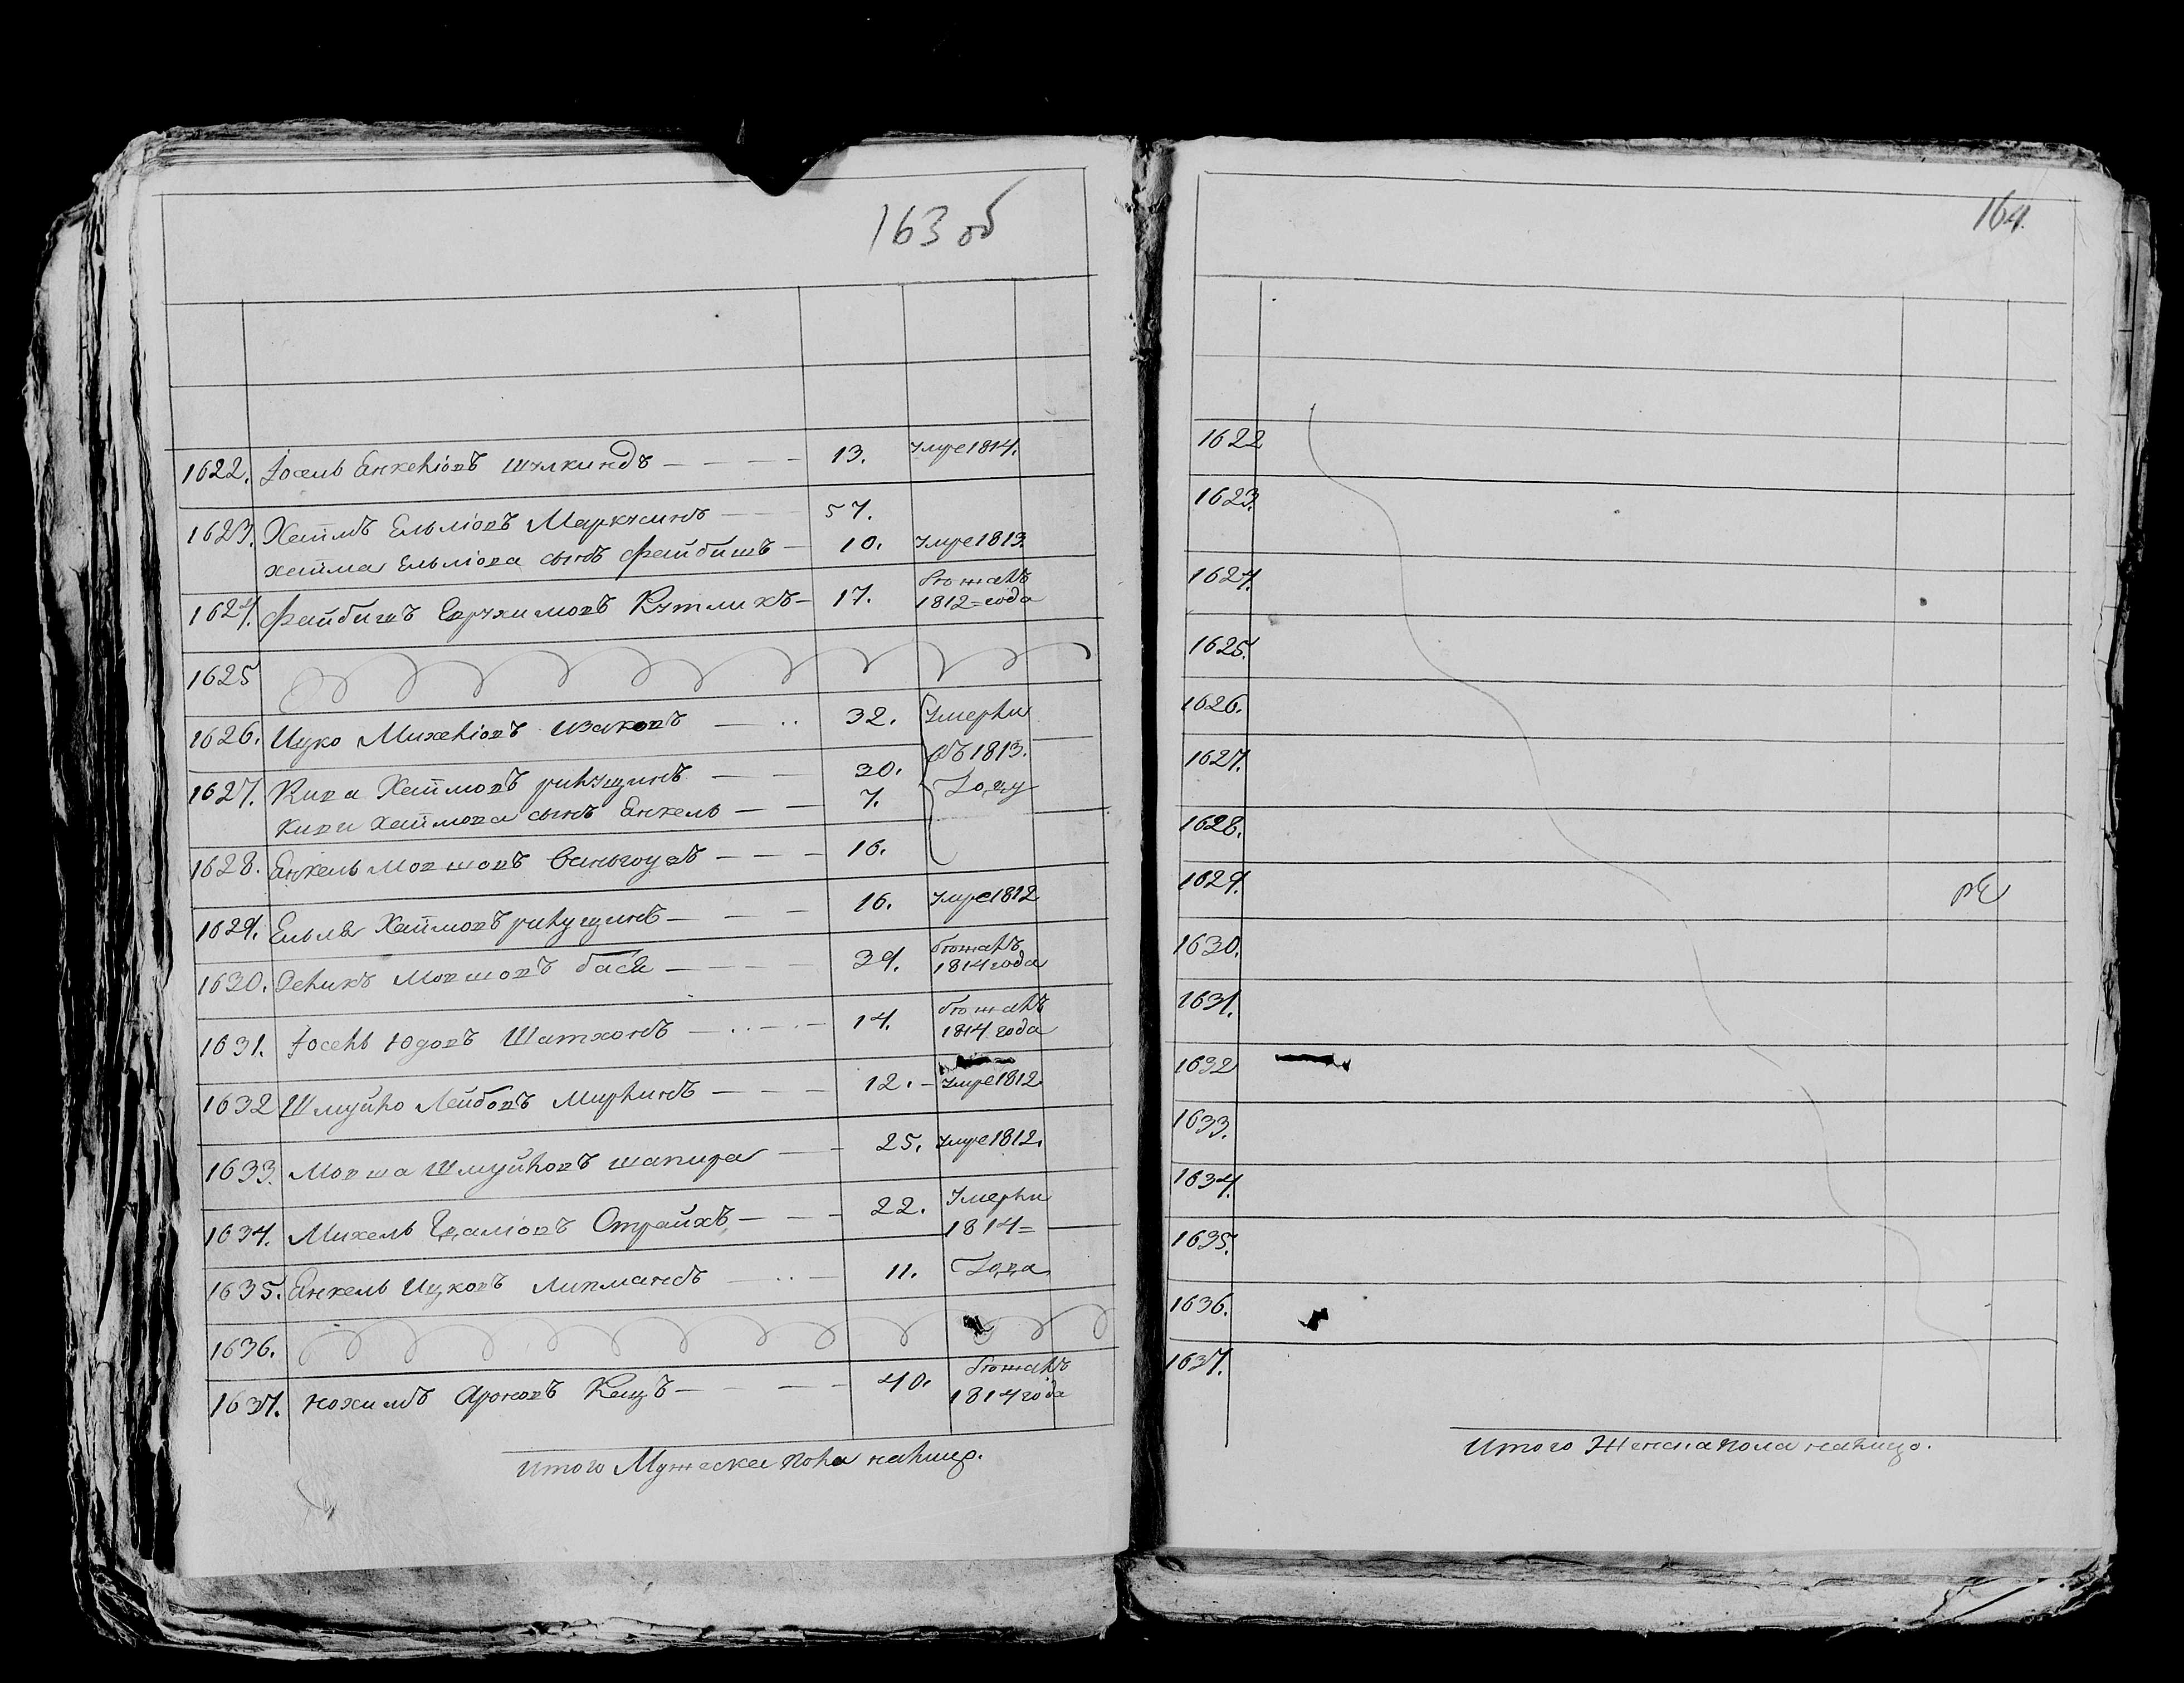 163 об
1622. Іосель Енкеліовъ Шулкиндъ 13. Умре 1814.
1623. Хаймъ Ельліовъ Маркусинъ 57.
хайма Ельліова сынъ Файбишъ 10. Умре 1813.
1624. Файбишъ Еерухимовъ Кутликъ 17. бѣжалъ 1812 = года
1625
1626. Ицко Михеліовъ Изаковъ 32. Умерли
1627. Кива Хаймовъ рилущинъ 30. въ 1813.
киви Хаймова сынъ Енкель 7. Году
1628. Енкель Мовшовъ 16.
1629. Ельля Хаймовъ рилущинъ 16. Умре 1812
1630. Зеликъ Мовшовъ басъ 39. бѣжалъ 1814 года
1631. Іосель Юдовъ Шатхонъ 14. бѣжалъ 1814 года
1632 Шмуйло Лейбовъ Мирлинъ 12. Умре 1812
1633. Мовша Шмуйловъ шапира 25. Умре 1812.
1634. Михель Гдаліовъ Страйхъ 22. Умерли 1814 =
1635. Енкель Ицковъ Липманъ 11. Года
1636.
1637. Нохимъ Ароновъ Кацъ 40. бѣжалъ 1814 года
Итого Мужеска пола налицо.
164.
1622
1623.
1624.
1625.
1626.
1627.
1628.
1629.
1630.
1631.
1632
1633.
1634.
1635.
1636.
1637.
Итого Женска пола налицо.